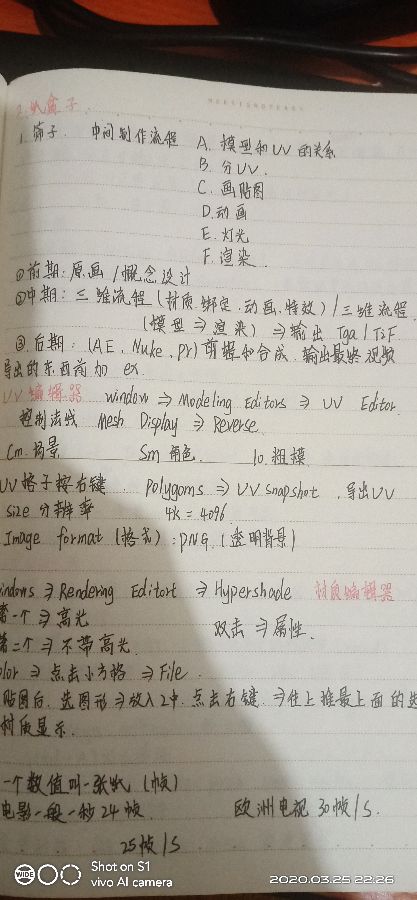 2. 盒子.
1. 筛子. 中间制作流程 A. 模型和UV的关系
B. 分UV.
C. 画贴图
D. 动画
E. 灯光
F. 渲染
①前期:原画/概念设计
②中期:三维流程(材质.绑定.动画.特效)/三维流程.
(模型⇒渲染)⇒输出 Tga/TiF
③.后期:(AE. Nuke. Pr)剪辑和合成.输出最终视频
导出的东西前加 ex.
UV编辑器 window ⇒ Modeling Editors ⇒ UV Editor.
控制法线 Mesh Display ⇒ Reverse.
Cm.场景 Sm 角色. lo.粗模.
UV格子按右键. Polygoms ⇒ UV snapshot.导出UV
size 分辨率 4k = 4096
Image format (格式):PNG.(透明背景)
indows ⇒ Rendering Editort ⇒ Hypershade 材质编辑器
第一个⇒高光 双击⇒属性.
第二个⇒不带高光.
olor ⇒ 点击小方格 ⇒ File.
贴图后.选图形⇒放入2中.点击右键.⇒往上推最上面的选
材质显示.
一个数值叫一张纸(帧)
电影一般一秒24帧. 欧洲电视 30帧/S.
25帧/S
WIDE
Shot on S1
vivo AI camera
2020.03.25 22:26